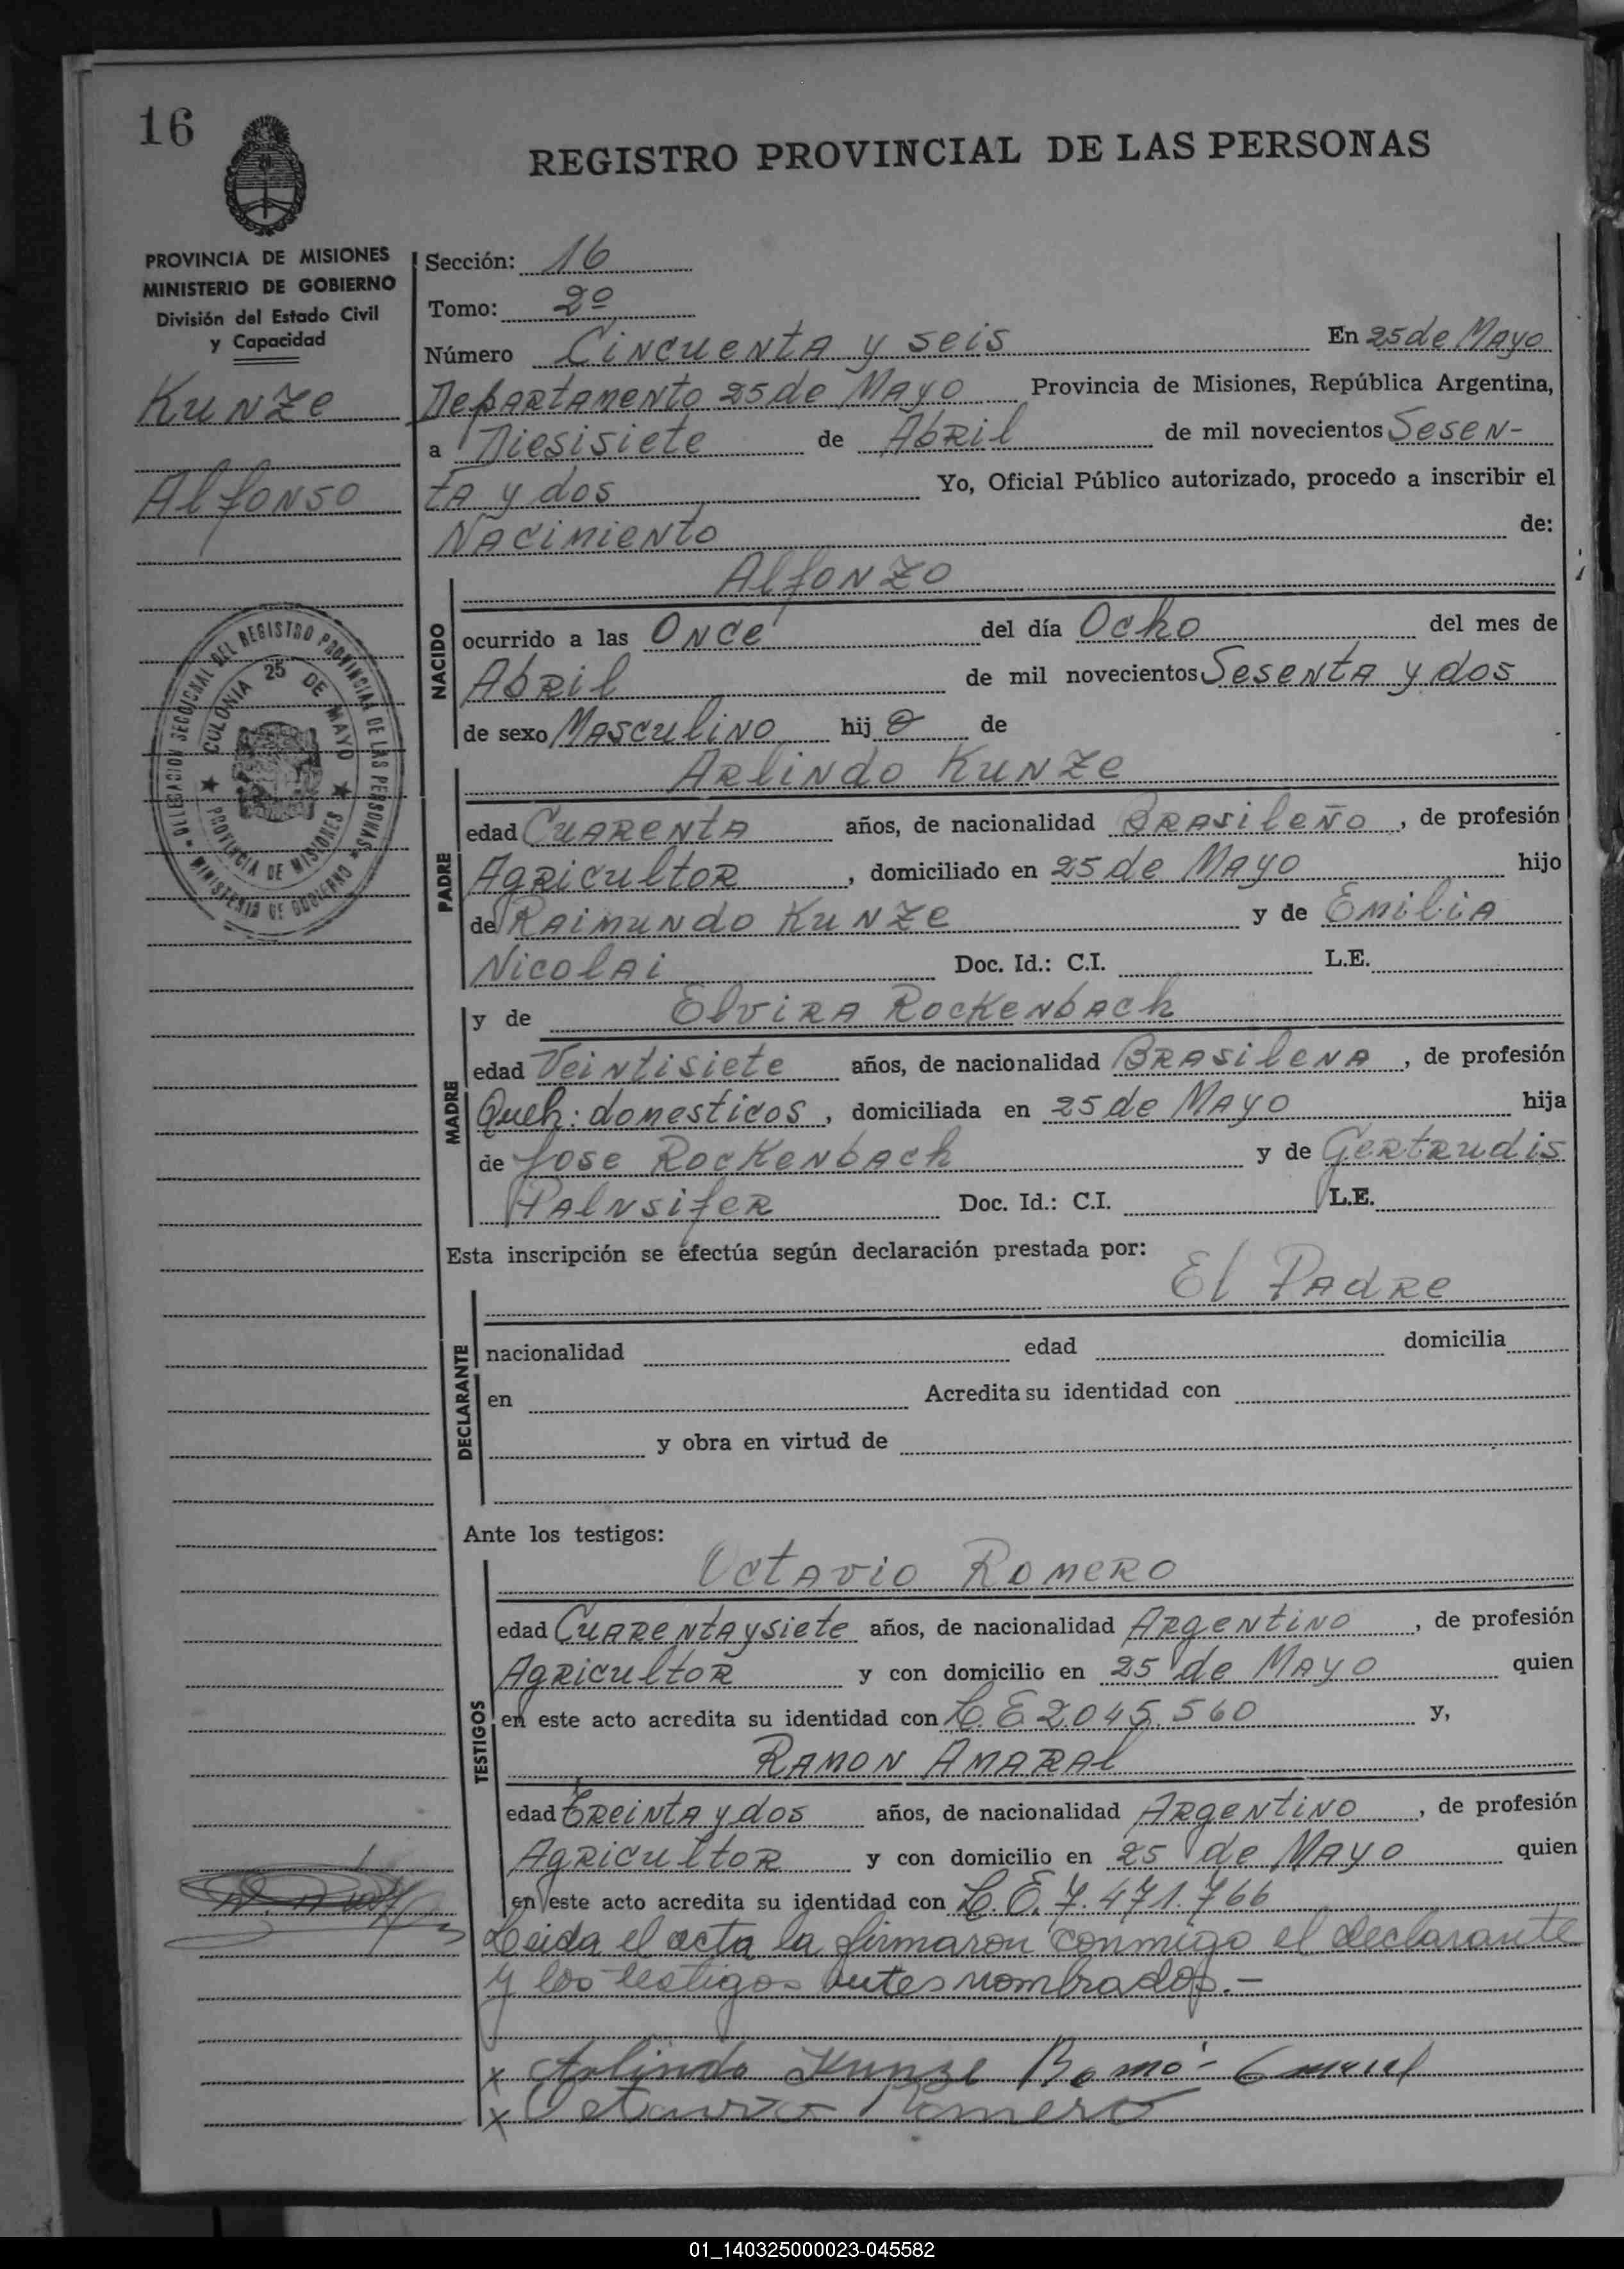 16
REGISTRO PROVINCIAL DE LAS PERSONAS
PROVINCIA DE MISIONES
MINISTERIO DE GOBIERNO
División del Estado Civil
y Capacidad
Kunze
Alfonso
DELEGACION SECCIONAL DEL REGISTRO PROVINCIAL DE LAS PERSONAS
MINISTERIO DE GOBIERNO
COLONIA 25 DE MAYO
PROVINCIA DE MISIONES
Sección: 16
Tomo: 2º
Número Cincuenta y seis En 25 de Mayo
Departamento 25 de Mayo Provincia de Misiones, República Argentina,
a Diesisiete de Abril de mil novecientos Sesen-
ta y dos Yo, Oficial Público autorizado, procedo a inscribir el
Nacimiento de:
NACIDO
Alfonzo
ocurrido a las Once del día Ocho del mes de
Abril de mil novecientos Sesenta y dos
de sexo Masculino hij o de
PADRE
Arlindo Kunze
edad Cuarenta años, de nacionalidad Brasileño, de profesión
Agricultor, domiciliado en 25 de Mayo hijo
de Raimundo Kunze y de Emilia
Nicolai Doc. Id.: C.I. L.E.
MADRE
y de Elvira Rockenbach
edad Veintisiete años, de nacionalidad Brasilena, de profesión
Queh: domesticos, domiciliada en 25 de Mayo hija
de Jose Rockenbach y de Gertrudis
Palnsifer Doc. Id.: C.I. L.E.
Esta inscripción se efectúa según declaración prestada por:
El Padre
DECLARANTE
nacionalidad edad domicilia
en Acredita su identidad con
y obra en virtud de
Ante los testigos:
TESTIGOS
Octavio Romero
edad Cuarenta y siete años, de nacionalidad Argentino, de profesión
Agricultor y con domicilio en 25 de Mayo quien
en este acto acredita su identidad con L.E 2.045.560 y,
Ramon Amaral
edad Treinta y dos años, de nacionalidad Argentino, de profesión
Agricultor y con domicilio en 25 de Mayo quien
en este acto acredita su identidad con L.E. 7.471.766
Leida el acta la firmaron conmigo el declarante
y los testigos antes nombrados.-
x Arlindo Kunze Ramó
x Octavio Romero
01_140325000023-045582